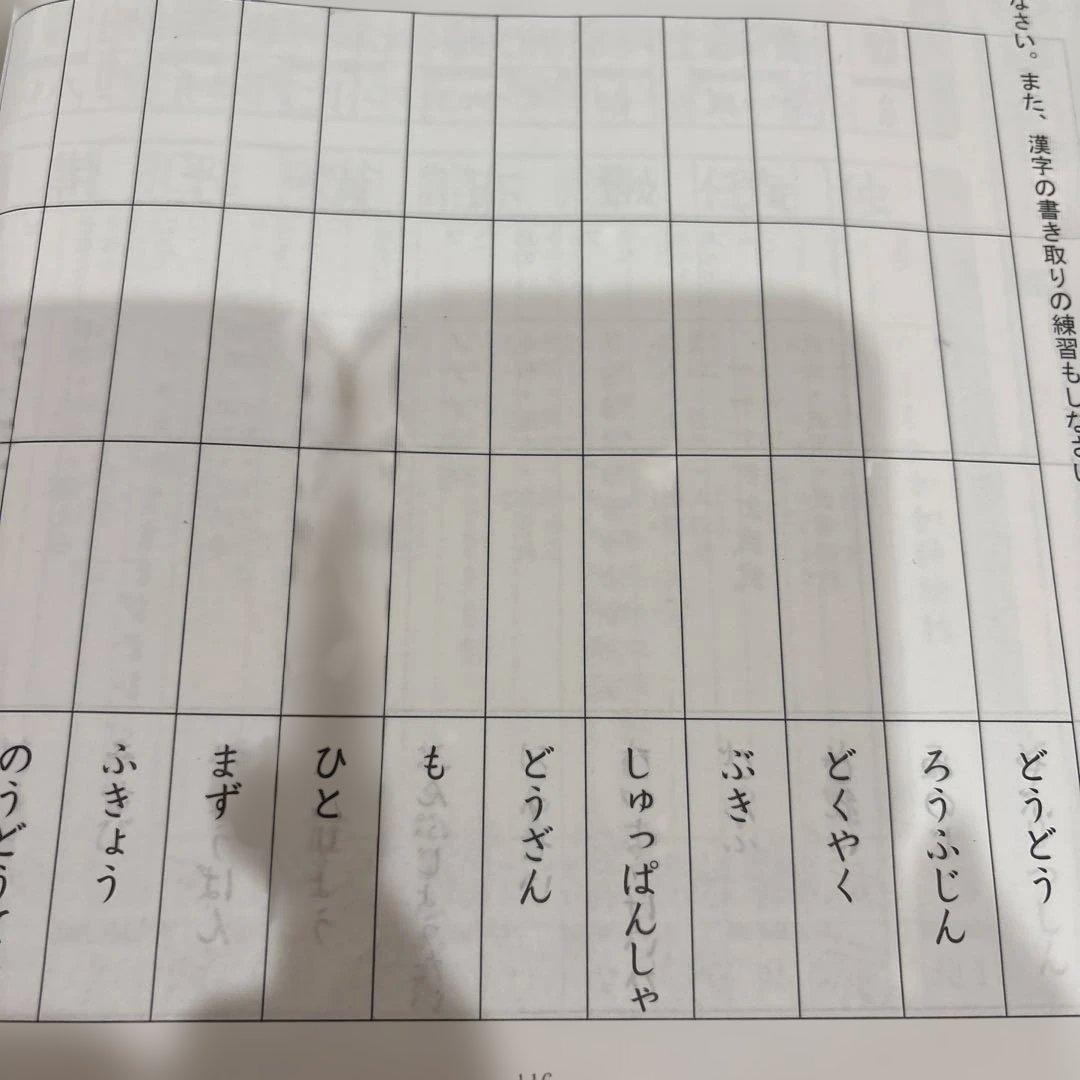 なさい。また、漢字の書き取りの練習もしなさい
どうどう
ろうふじん
どくやく
ぶき
しゅっぱんしゃ
どうざん
も
ひと
まず
ふきょう
のうどうて